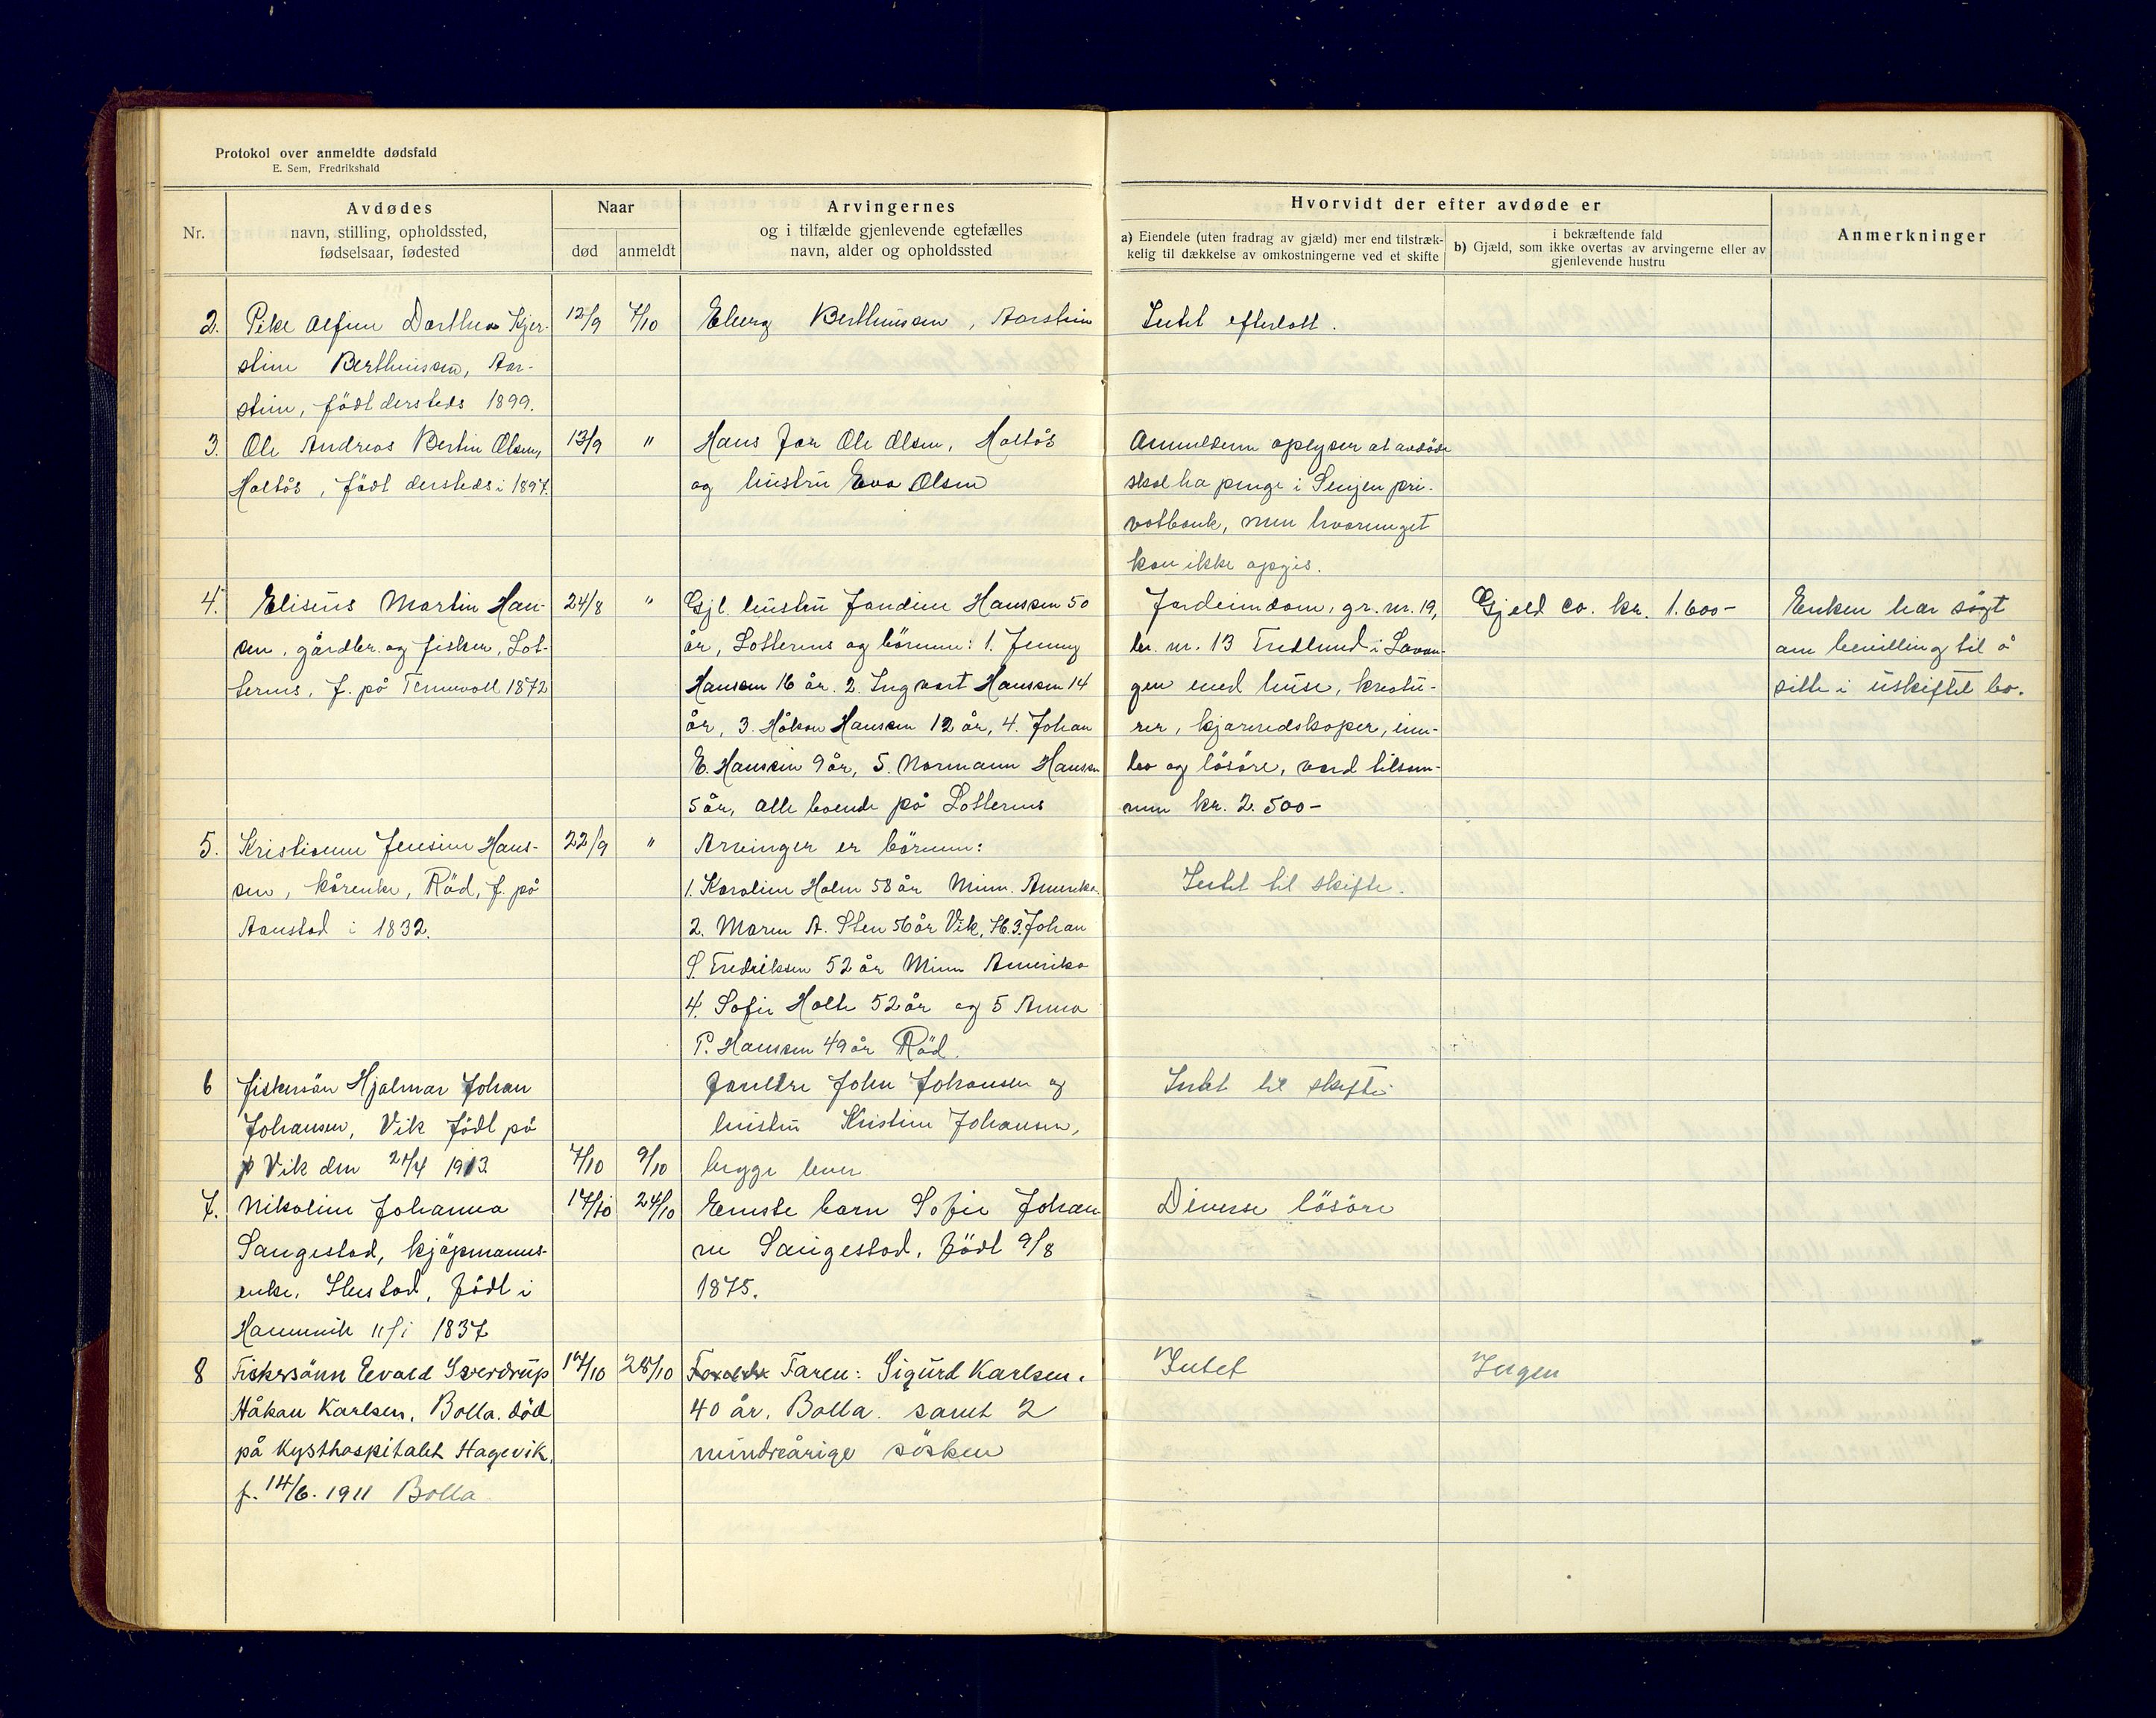 Protokol over anmeldte dødsfald
E. Sem, Fredrikshald
Nr.
Avdødes
navn, stilling, opholdssted,
fødselsaar, fødested
Naar
død
anmeldt
Arvingernes
og i tilfælde gjenlevende egtefælles
navn, alder og opholdssted
Hvorvidt der efter avdøde er
a) Eiendele (uten fradrag av gjæld) mer end tilstræk-
kelig til dækkelse av omkostningerne ved et skifte
i bekræftende fald
b) Gjæld, som ikke overtas av arvingerne eller av
gjenlevende hustru
Anmerkninger
2. Pike Alfine Dorthea Kjer- 12/9 7/10 Eberg Berthinsen, Aarstein Intet efterlatt.
stine Berthinsen, Aar-
stein, född dersteds 1899.
3. Ole Andreas Bertin Olsen, 13/9 " Hans far Ole Olsen, Holtås Anmelderen oplyser at avdöde
Holtås, födt dersteds i 1897. og hustru Eva Olsen skal ha penge i Senjen pri-
vatbank, men hvormeget
kan ikke opgis.
4. Elisius Martin Han- 24/8 " Gjl. hustru Jondine Hansen 50 Jordeiendom, gr. nr. 19, Gjeld ca. kr. 1.600- Enken har sögt
sen, gårdbr. og fisker, Lot- år, Lotternes og börnene: 1. Jenny br. nr. 13 Fredlund i Lavan- om bevilling til å
ternes, f. på Tennevoll 1872 Hansen 16 år. 2. Ingvart Hansen 14 gen med huse, kreatu- sitte i uskiftet bo.
år, 3. Håkon Hansen 12 år, 4. Johan rer, kjöreredskaper, inn-
E. Hansen 9 år, 5. Normann Hansen bo og lösöre, verd tilsam-
5 år, alle boende på Lotternes men kr. 2.500-
5. Kristianne Jensine Hans- 22/9 " Arvinger er börnene:
sen, kårenke, Röd, f. på 1. Karoline Holm 58 år Minn. Amerika. Intet til skifte.
Aanstad i 1832. 2. Maren A. Sten 56 år Vik, H. 3. Johan
S. Fredriksen 52 år Minn Amerika
4. Sofie Holte 52 år og 5 Anna
P. Hansen 49 år Röd.
6 fiskersön Hjalmar Johan Foreldre John Johansen og Intet til skifte
Johansen, Vik födt på hustru Kristine Johansen,
p Vik den 24/4 1913 7/10 9/10 begge lever
7. Nikoline Johanna 17/10 24/10 Eneste barn Sofie Johan Diverse lösöre
Saugestad, kjöpmanns- ne Saugestad, födt 9/8
enke, Stenstad, födt i 1875.
Hamnvik 11/i 1837
8 Fiskersönn Eevald Sverdrup 17/10 28/10 Foreldre Faren: Sigurd Karlsen. Intet Ingen
Håkan Karlsen, Bolla. död 40 år. Bolla. samt 2
på Kysthospitalet Hagevik. mindreårige sösken
f. 14/6. 1911 Bolla